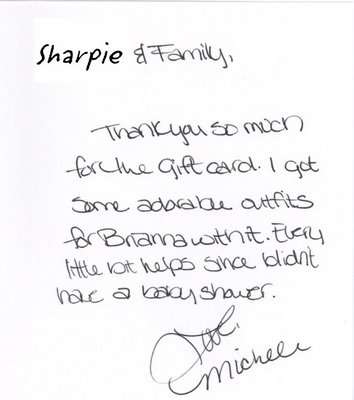 Sharpie & Family,
Thank you so much
for the gift card. I got
some adorable outfits
for Brianna with it. Every
little bit helps since I didn't
have a baby shower.
Love,
Michele